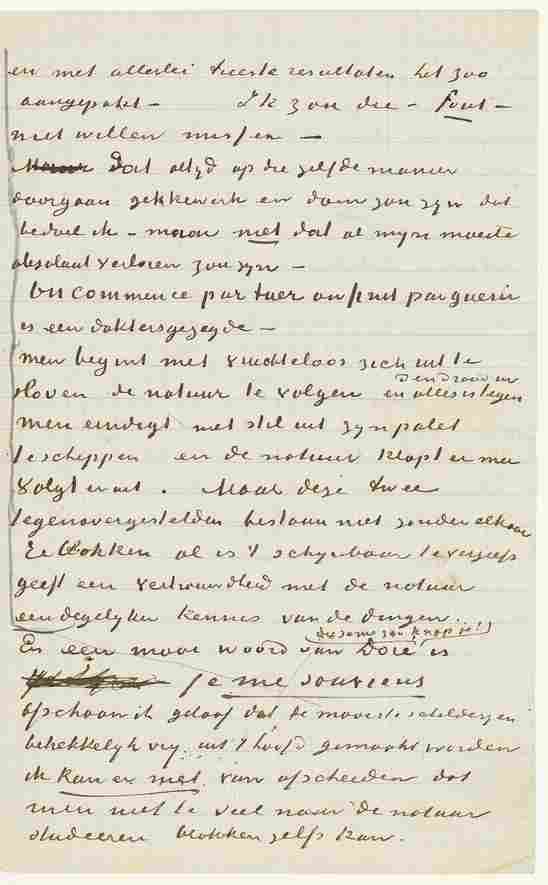 en met allerlei trieste resultaten het zoo
aangepakt – Ik zou die – fout –
niet willen missen –
Maar Dat altijd op die zelfde manier
doorgaan gekkewerk en dom zou zijn dat
bedoel ik – maar niet dat al mijn moeite
absoluut verloren zou zijn –
On commence par tuer on finit par guerir
is een doktersgezegde –
men begint met vruchteloos zich uit te
sloven de natuur te volgen en alles is tegen
den draad in
men eindigt met stil uit zijn palet
te scheppen en de natuur klopt er mee
volgt er uit . Maar deze twee
tegenovergestelden bestaan niet zonder elkaar
Er blokken al is 't schijnbaar te vergeefs
geeft een vertrouwdheid met de natuur
een degelijker kennis van de dingen.
En een mooi woord van Doré is
(die soms zoo knap is!)
je me souviens
ofschoon ik geloof dat de mooiste schilderijen
betrekkelijk vrij uit 't hoofd gemaakt worden
ik kan er niet van afscheiden dat
men niet te veel naar de natuur
studeeren blokken zelfs kan.